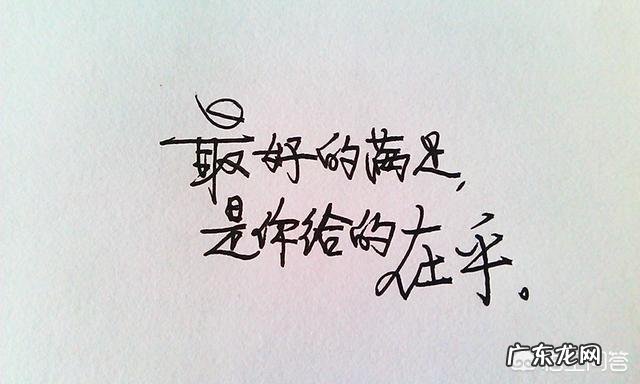 最好的满足,
是你给的在乎。
广东龙网